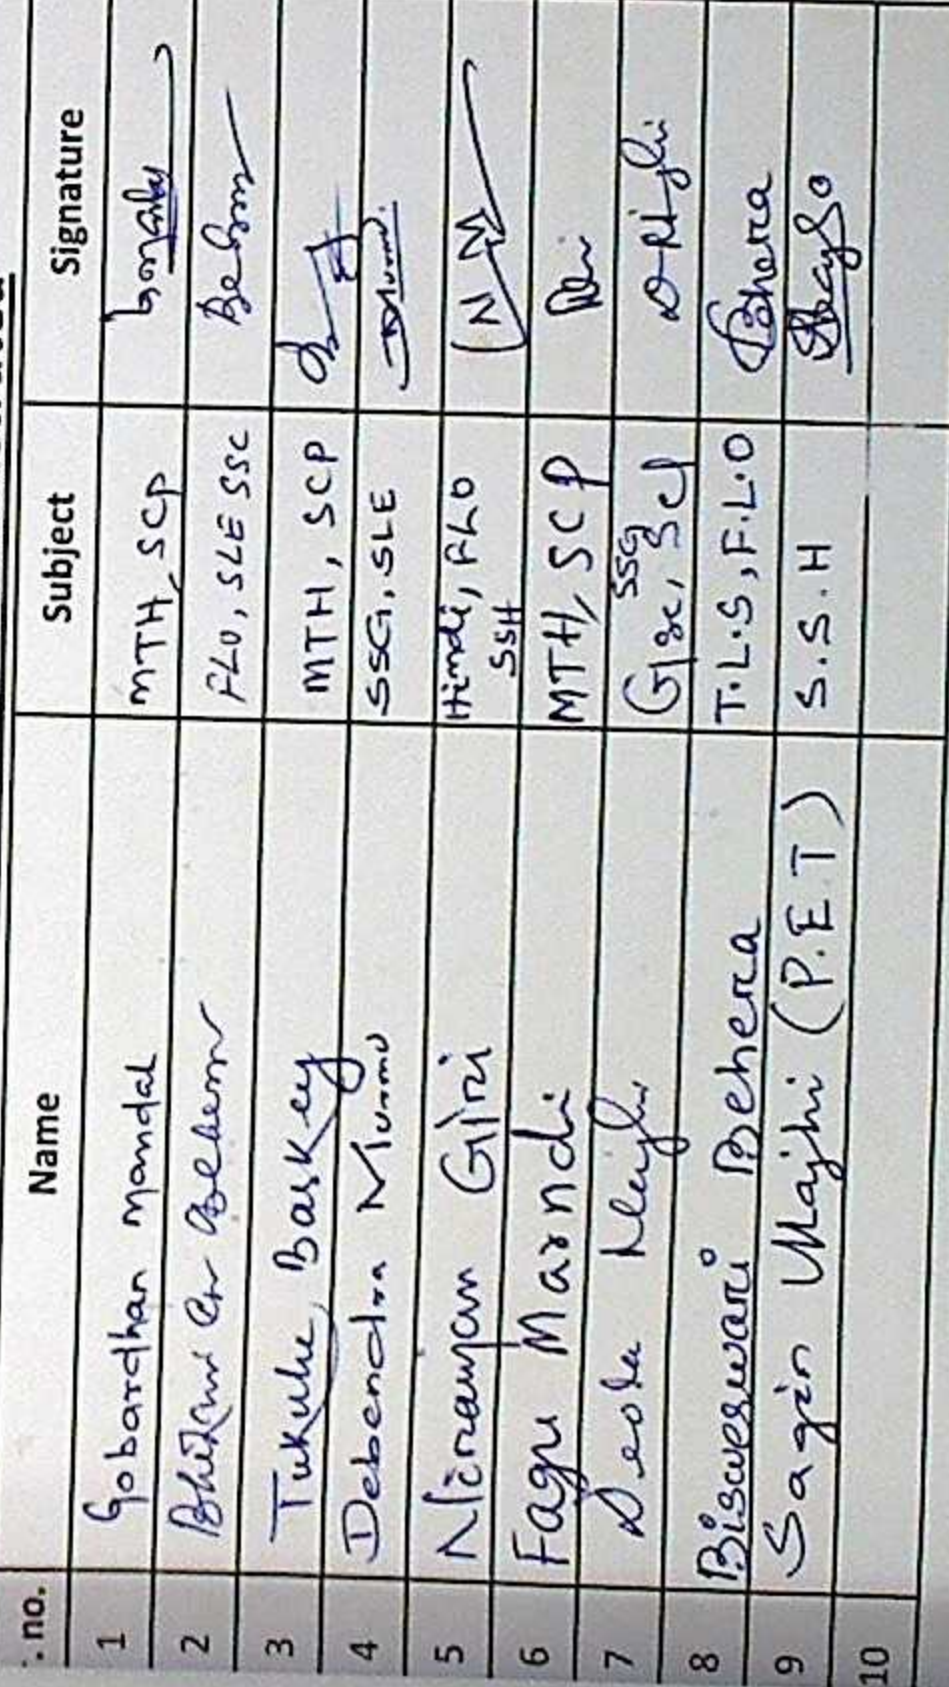 . no. Name Subject Signature
1 Gobardhan Mandal MTH, SCP
2 Behera FLO, SLE SSC Behera
3 Tukulu Baskey MTH, SCP
4 Debendra Murmu SSG, SLE
5 Niranjan Giri Hindi, FLO SSH NN
6 Fagu Marndi MTH, SCP
7 Gsc, SCP SSG
8 Bisweswari Behera T.L.S, F.L.O Bhera
9 Sagin Majhi (P.E.T) S.S.H
10